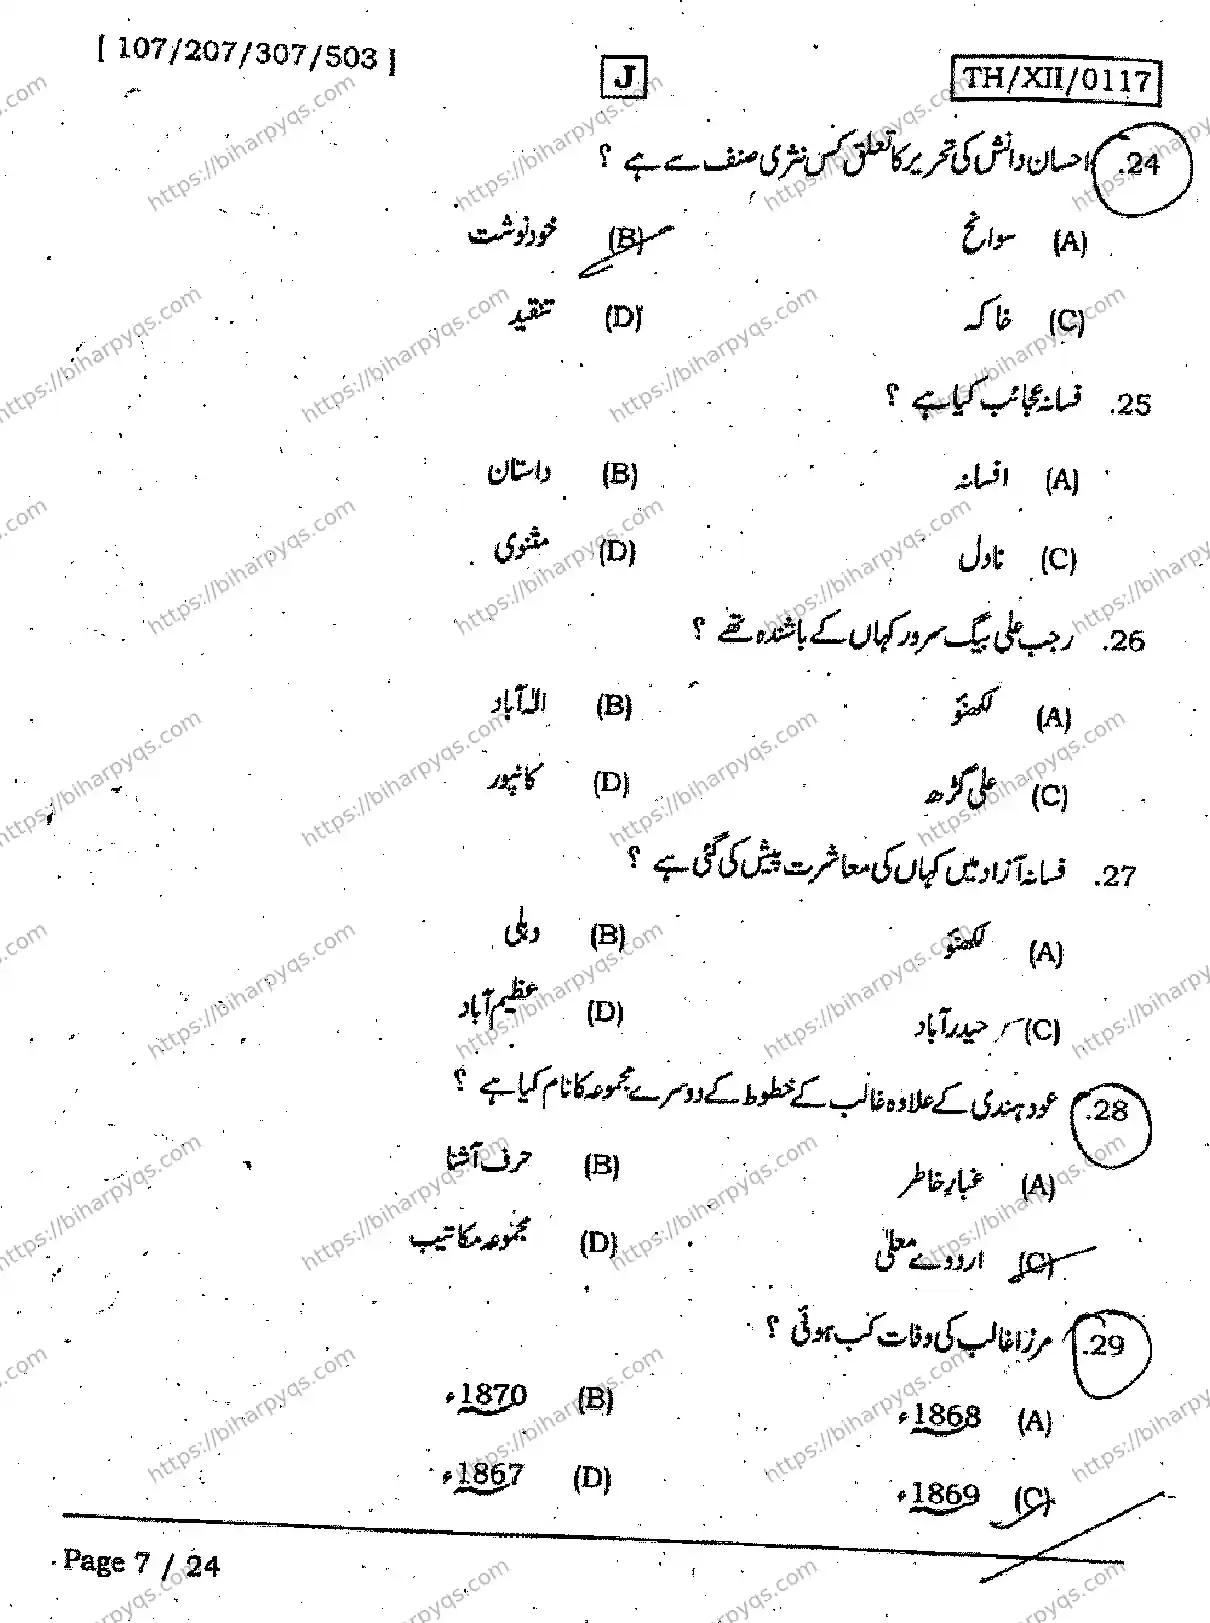 [ 107/207/307/503 ]
J
TH/XII/0117
24. احسان دانش کی تحریر کا تعلق کس نثری صنف سے ہے ؟
(A) سوانح
(B) خودنوشت
(C) خاکہ
(D) تنقید
25. فسانۂ عجائب کیا ہے ؟
(A) افسانہ
(B) داستان
(C) ناول
(D) مثنوی
26. رجب علی بیگ سرور کہاں کے باشندہ تھے ؟
(A) لکھنؤ
(B) الہٰ آباد
(C) علی گڑھ
(D) کانپور
27. فسانۂ آزاد میں کہاں کی معاشرت پیش کی گئی ہے ؟
(A) لکھنؤ
(B) دہلی
(C) حیدرآباد
(D) عظیم آباد
28. عود ہندی کے علاوہ غالب کے خطوط کے دوسرے مجموعہ کا نام کیا ہے ؟
(A) غبارِ خاطر
(B) حرف آشنا
(C) اردوے معلّٰی
(D) مجموعۂ مکاتیب
29. مرزا غالب کی وفات کب ہوئی ؟
(A) 1868ء
(B) 1870ء
(C) 1869ء
(D) 1867ء
Page 7 / 24
https://biharpyqs.com